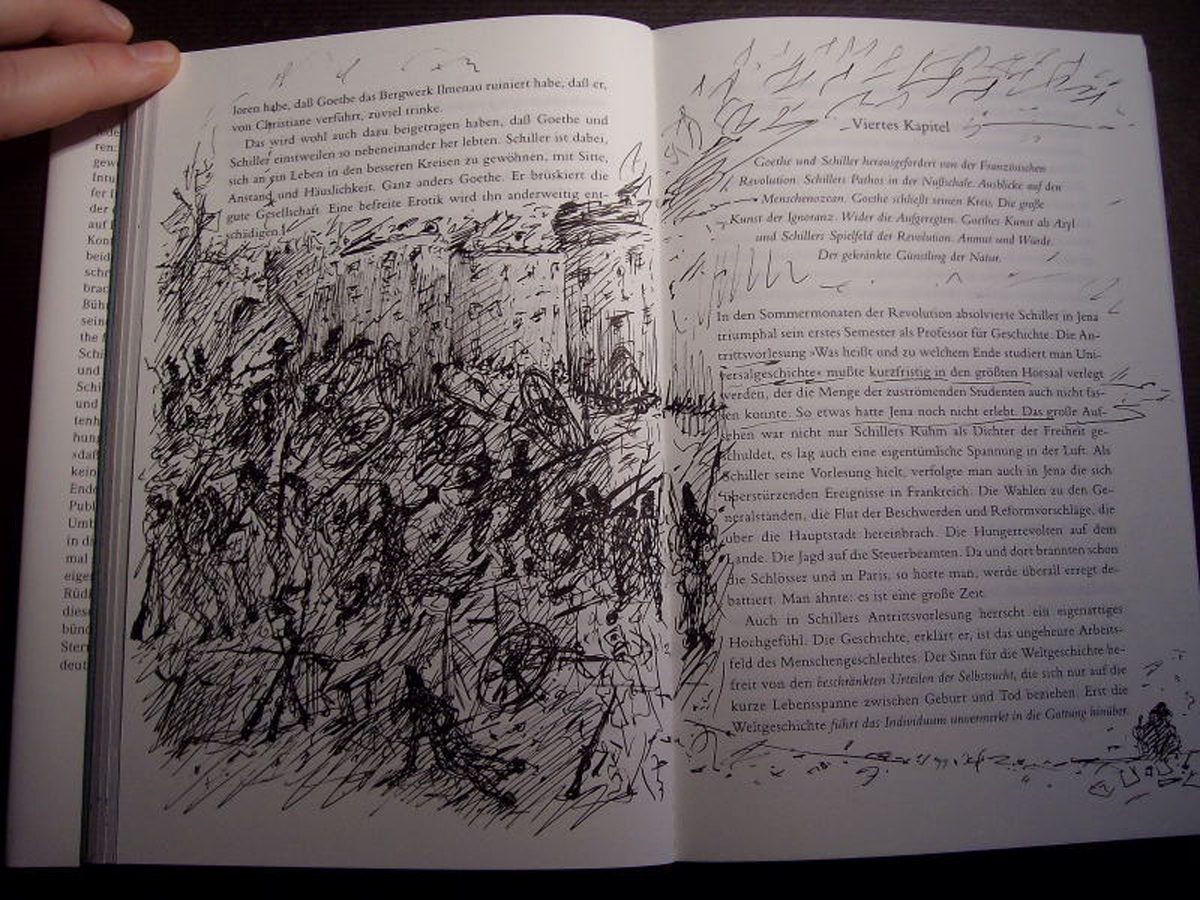 loren habe, daß Goethe das Bergwerk Ilmenau ruiniert habe, daß er,
von Christiane verführt, zuviel trinke.
Das wird wohl auch dazu beigetragen haben, daß Goethe und
Schiller einstweilen so nebeneinander her lebten. Schiller ist dabei,
sich an ein Leben in den besseren Kreisen zu gewöhnen, mit Sitte,
Anstand und Häuslichkeit. Ganz anders Goethe. Er brüskiert die
gute Gesellschaft. Eine befreite Erotik wird ihn anderweitig ent-
schädigen.
ren
gew
Intu
fer
der
auf
Kon
beid
schr
brac
Büh
sein
the
Schi
und
Schi
und
tenh
hung
»daß
kein
Ende
Publ
Umb
in d
mal
eige
Rüd
dies
bünd
Stern
deut
Viertes Kapitel
Goethe und Schiller herausgefordert von der Französischen
Revolution. Schillers Pathos in der Nußschale. Ausblicke auf den
Menschenozean. Goethe schließt seinen Kreis. Die große
Kunst der Ignoranz. Wider die Aufgeregten. Goethes Kunst als Asyl
und Schillers Spielfeld der Revolution. Anmut und Würde.
Der gekränkte Günstling der Natur.
In den Sommermonaten der Revolution absolvierte Schiller in Jena
triumphal sein erstes Semester als Professor für Geschichte. Die An-
trittsvorlesung »Was heißt und zu welchem Ende studiert man Uni-
versalgeschichte« mußte kurzfristig in den größten Hörsaal verlegt
werden, der die Menge der zuströmenden Studenten auch nicht fas-
sen konnte. So etwas hatte Jena noch nicht erlebt. Das große Auf-
sehen war nicht nur Schillers Ruhm als Dichter der Freiheit ge-
schuldet, es lag auch eine eigentümliche Spannung in der Luft. Als
Schiller seine Vorlesung hielt, verfolgte man auch in Jena die sich
überstürzenden Ereignisse in Frankreich. Die Wahlen zu den Ge-
neralständen, die Flut der Beschwerden und Reformvorschläge, die
über die Hauptstadt hereinbrach. Die Hungerrevolten auf dem
Lande. Die Jagd auf die Steuerbeamten. Da und dort brannten schon
die Schlösser und in Paris, so hörte man, werde überall erregt de-
battiert. Man ahnte: es ist eine große Zeit.
Auch in Schillers Antrittsvorlesung herrscht ein eigenartiges
Hochgefühl. Die Geschichte, erklärt er, ist das ungeheure Arbeits-
feld des Menschengeschlechtes. Der Sinn für die Weltgeschichte be-
freit von den beschränkten Urteilen der Selbstsucht, die sich nur auf die
kurze Lebensspanne zwischen Geburt und Tod beziehen. Erst die
Weltgeschichte führt das Individuum unvermerkt in die Gattung hinüber.